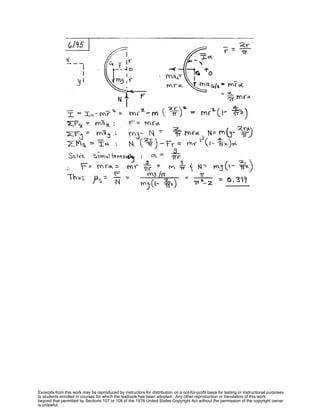 6/95
r̄ = 2r/π
x
r̄
r
G
O
mg
y
N
F
Īα
ma₀ = mrα
G
+O
ma_{G/O} = mr̄α
= 2/π mrα
Ī = I₀ - mr̄² = mr² - m (2r/π)² = mr² (1 - 4/π²)
ΣFx = māx : F = mrα
ΣFy = māy : mg - N = 2/π mrα, N = m(g - 2rα/π)
ΣMG = Īα : N (2r/π) - Fr = mr² (1 - 4/π²)α
Solve simultaneously : α = g/πr
∴ F = mrα = mr g/πr = m g/π & N = mg(1 - 2/π²)
Thus μs = F/N = (mg/π)/(mg(1 - 2/π²)) = π/(π²-2) = 0.399
Excerpts from this work may be reproduced by instructors for distribution on a not-for-profit basis for testing or instructional purposes
to students enrolled in courses for which the textbook has been adopted. Any other reproduction or translation of this work
beyond that permitted by Sections 107 or 108 of the 1976 United States Copyright Act without the permission of the copyright owner
is unlawful.